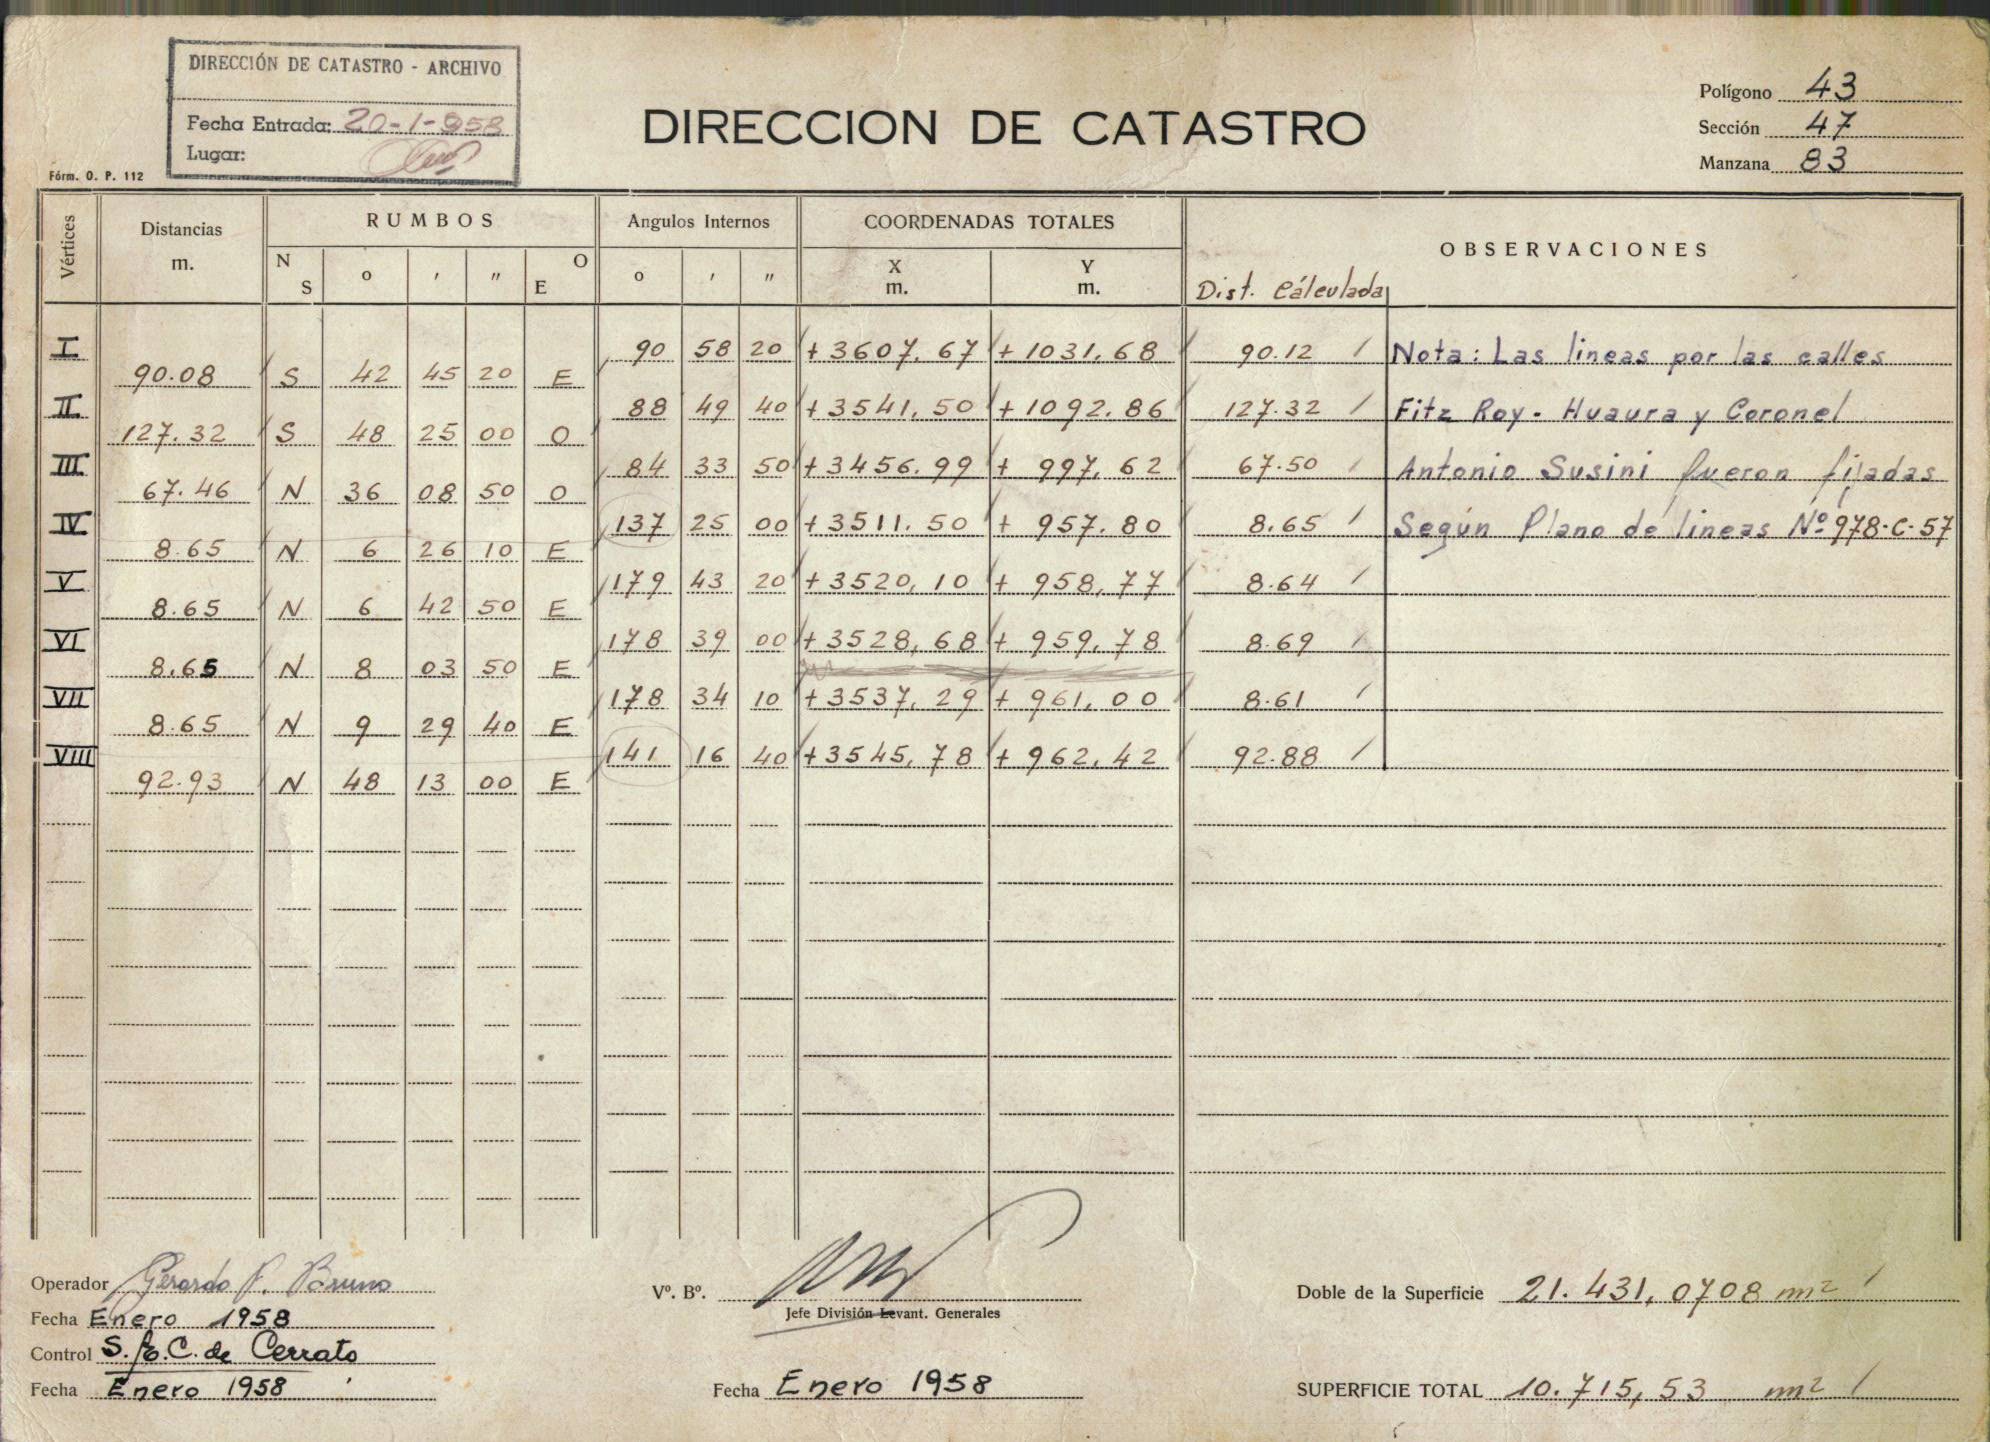 DIRECCIÓN DE CATASTRO - ARCHIVO
Fecha Entrada: 20-1-958
Lugar:
Fórm. O. P. 112
DIRECCION DE CATASTRO
Polígono 43
Sección 47
Manzana 83
Vértices Distancias m. RUMBOS Angulos Internos COORDENADAS TOTALES OBSERVACIONES
N S o ' " O E o ' " X m. Y m. Dist. Cálculada
I 90 58 20 +3607.67 +1031.68 90.12 Nota: Las lineas por las calles
90.08 S 42 45 20 E
II 88 49 40 +3541.50 +1092.86 127.32 Fitz Roy - Huaura y Coronel
127.32 S 48 25 00 O
III 84 33 50 +3456.99 + 997,62 67.50 Antonio Susini fueron fijadas
67.46 N 36 08 50 O
IV 137 25 00 +3511.50 + 957.80 8.65 Según Plano de lineas Nº 978-C-57
8.65 N 6 26 10 E
V 179 43 20 +3520,10 + 958,77 8.64
8.65 N 6 42 50 E
VI 178 39 00 +3528,68 + 959,78 8.69
8.65 N 8 03 50 E
VII 178 34 10 +3537,29 + 961,00 8.61
8.65 N 9 29 40 E
VIII 141 16 40 +3545,78 + 962,42 92.88
92.93 N 48 13 00 E
Operador Gerardo P. Bruno
Fecha Enero 1958
Control S. E. C. de Cerrato
Fecha Enero 1958
Vº. Bº.
Jefe División Levant. Generales
Fecha Enero 1958
Doble de la Superficie 21.431,0708 m²
SUPERFICIE TOTAL 10.715,53 m²